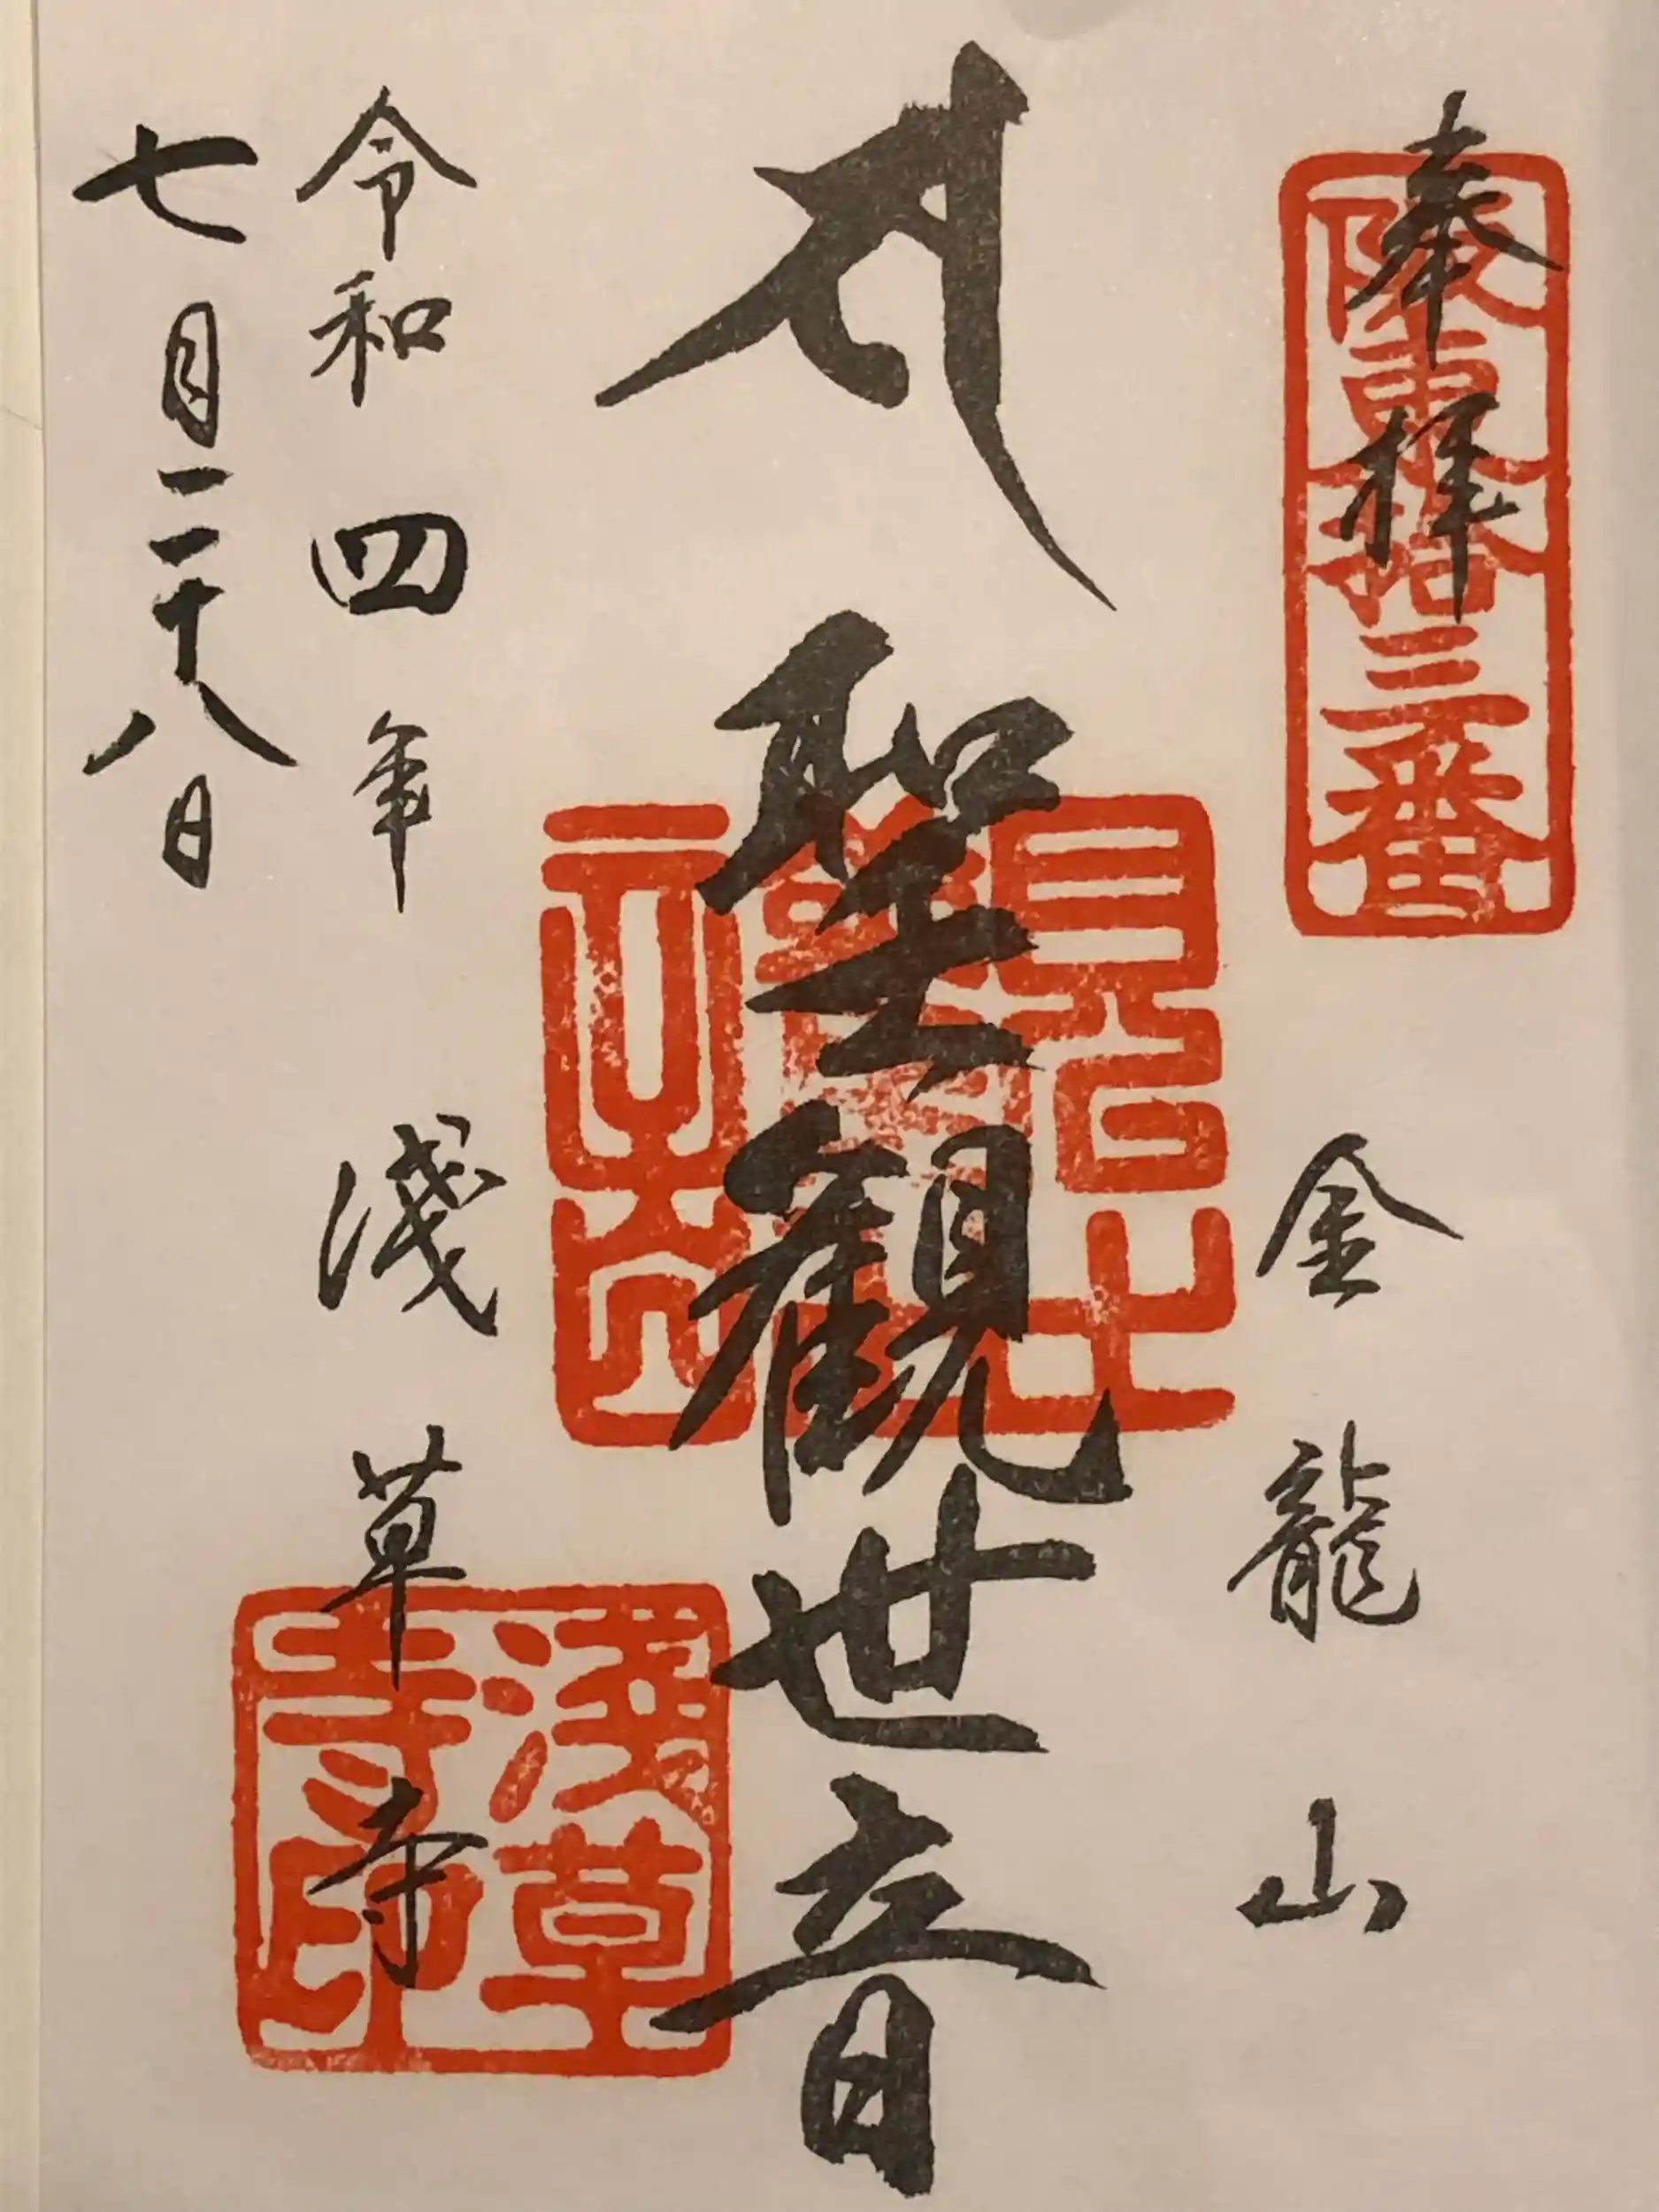 奉拝
坂東拾三番
金龍山
聖観世音
令和四年
淺草寺
淺草寺印
七月二十八日